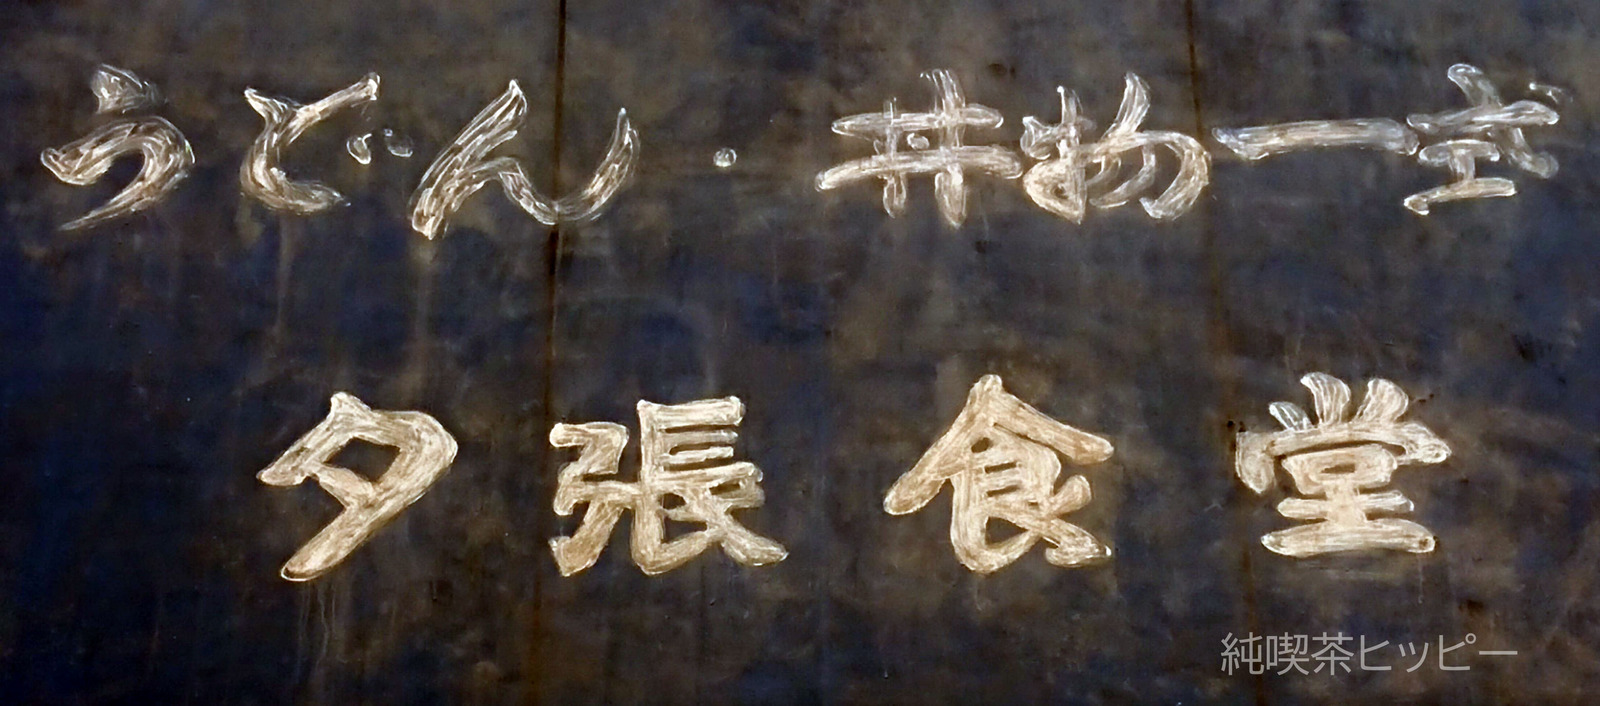 うどん・丼物一式
夕張食堂
純喫茶ヒッピー